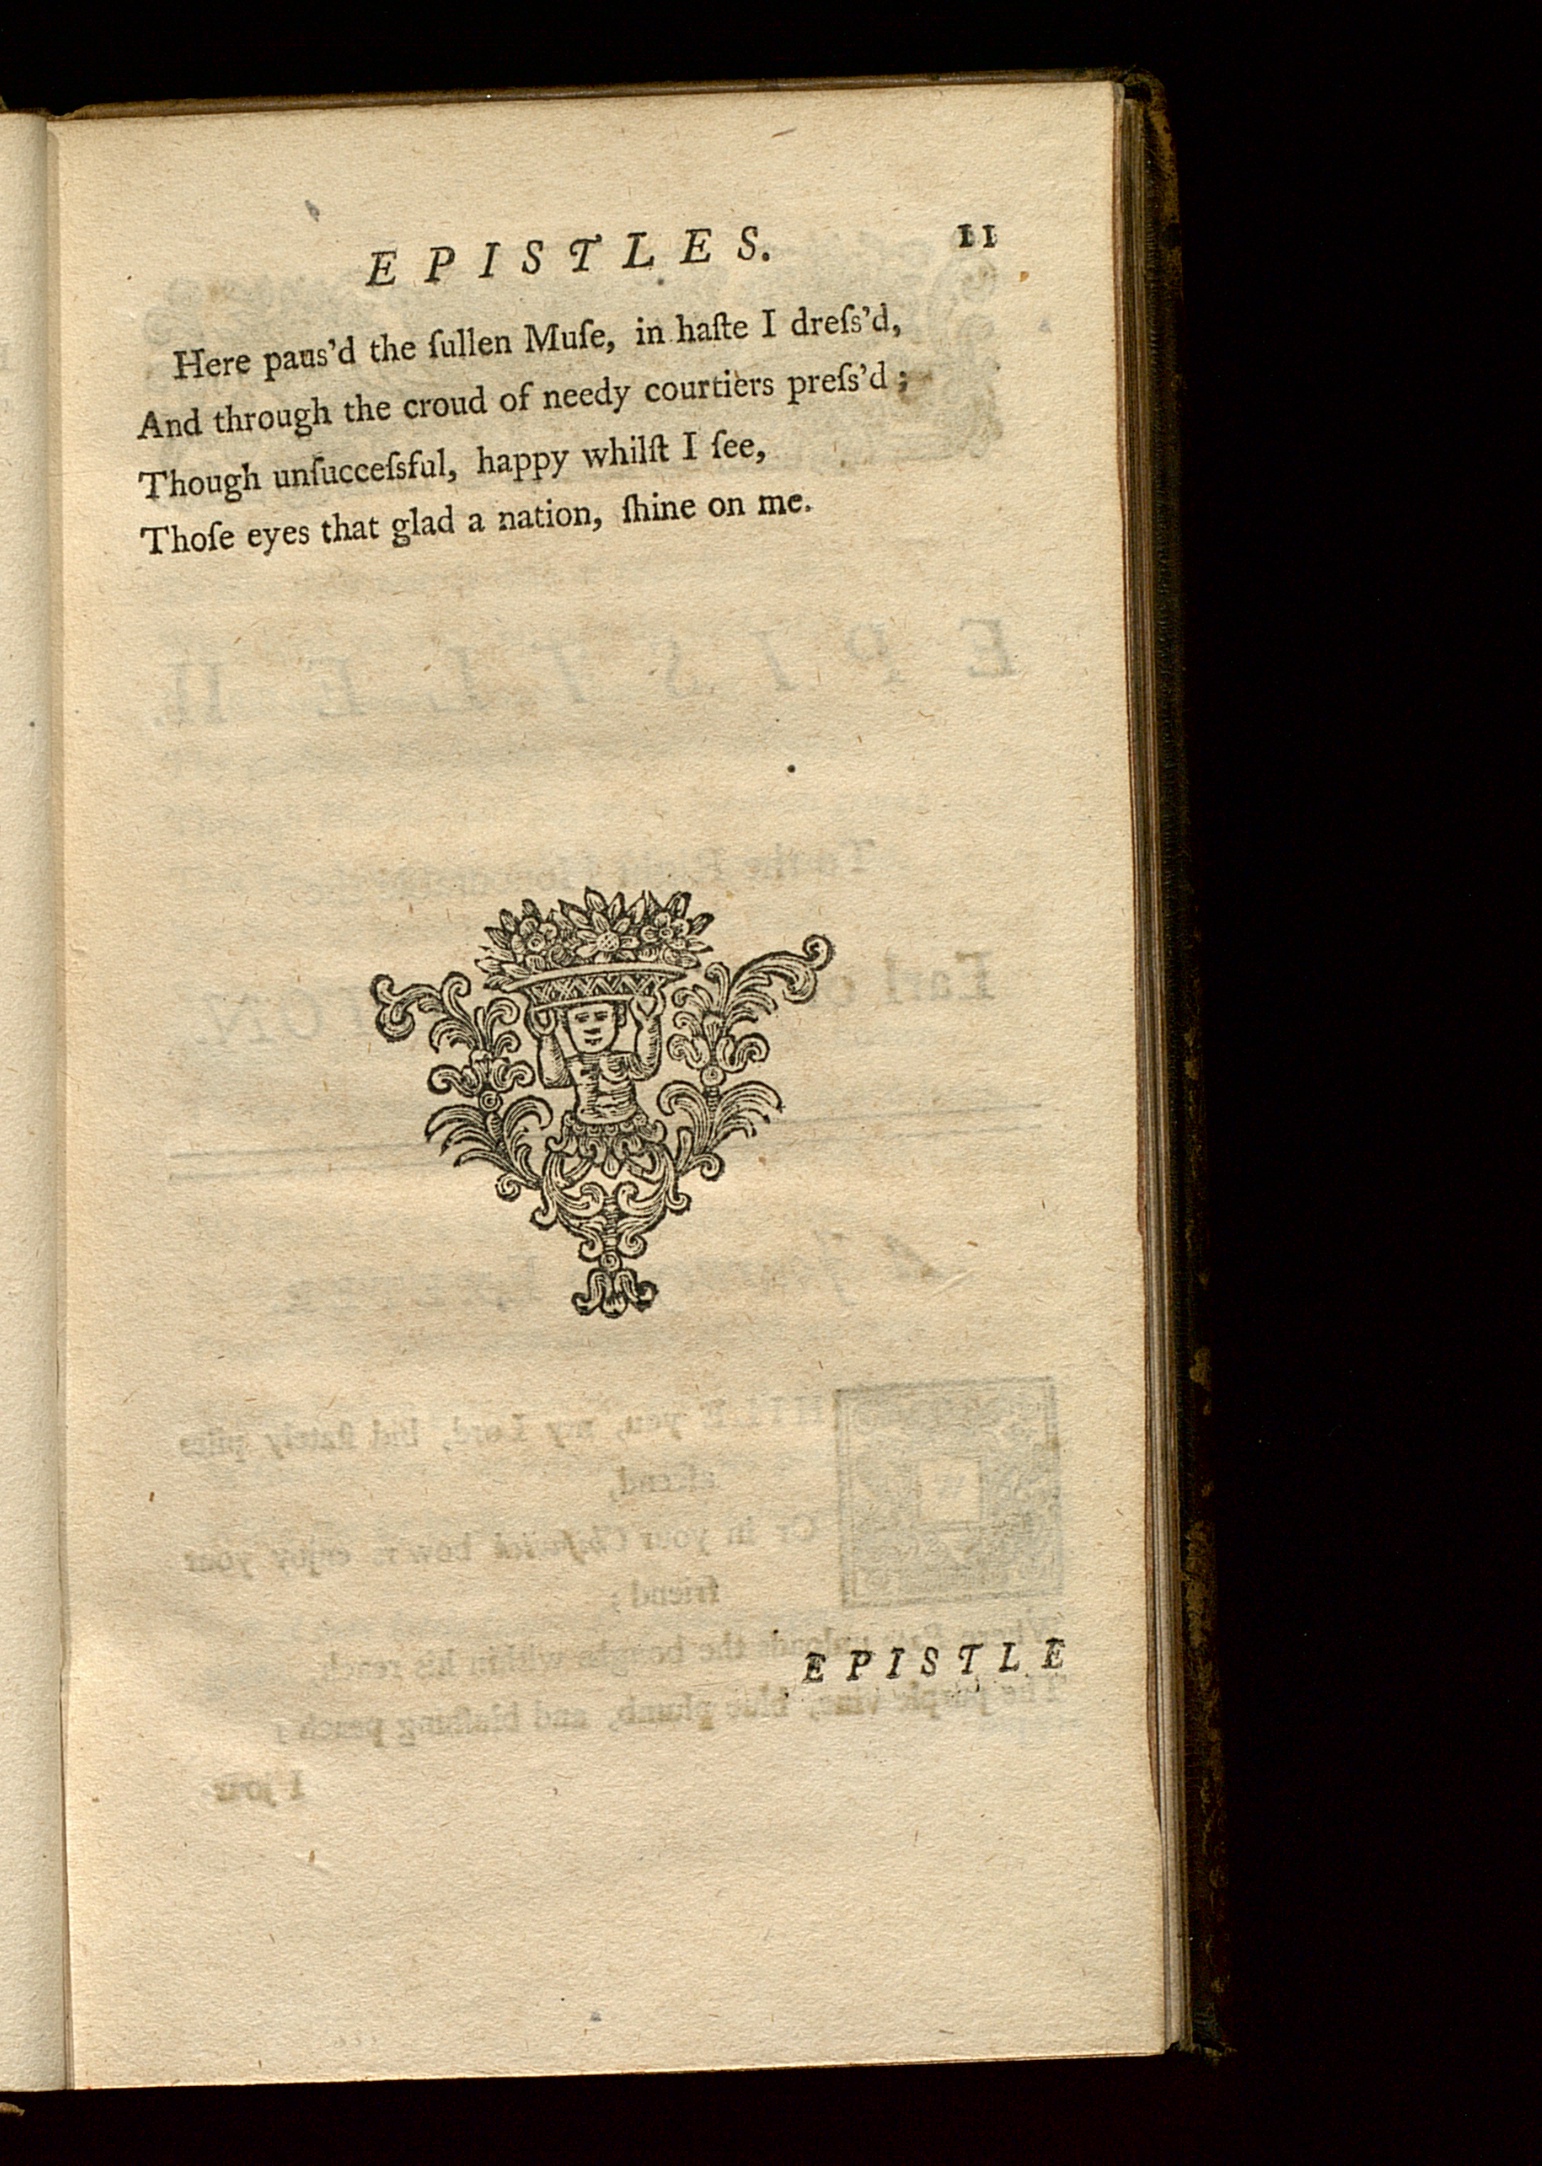 EPISTLES. 11
Here paus'd the ſullen Muſe, in haſte I dreſs'd,
And through the croud of needy courtiers preſs'd ;
Though unſucceſsful, happy whilſt I ſee,
Thoſe eyes that glad a nation, ſhine on me.
EPISTLE